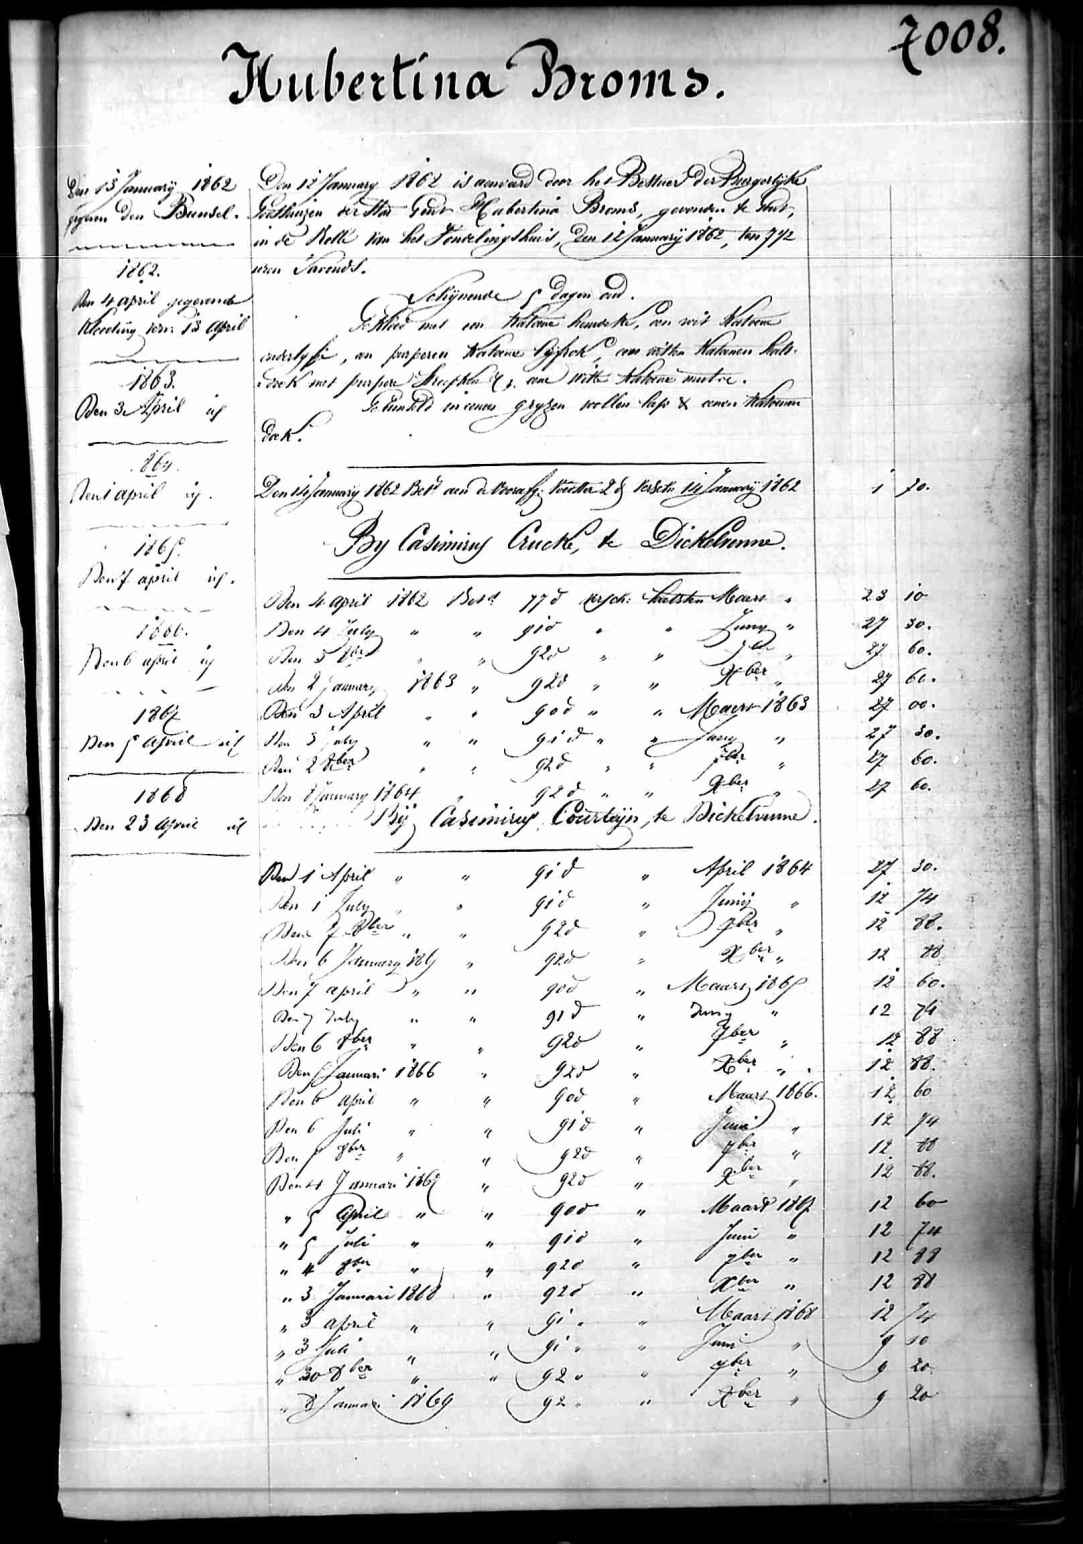 7008.
Hubertina Broms.
Den 13 January 1862
gegeven den Bunsel.
1862.
Den 4 april gegevende
Kleeding voor 13 April
1863.
Den 3 April id
1864.
Den 1 april id.
1865.
Den 7 april id.
1866.
Den 6 april id
1867
Den 5 April id
1868
Den 23 April id
Den 12 January 1862 is aenveerd door het Bestuer der Burgerlyke
Godshuizen der Stad Gend Hubertina Broms, gevonden te Gend,
in de Rolle van het Vondelingshuis, den 12 January 1862, ten 7 1/2
uren s'avonds.
Schynende 5 dagen oud.
Gekleed met een Katoene hemdeke, een wit Katoene
onderlyfje, een purperen Katoene lyfrok, een witten Katoenen hals-
doek met purpere streepkens &, eene witte Katoene mutse.
Gebunseld in eenen gryzen wollen laps & eenen Katoenen
doek.
Den 14 January 1862 Bet. aen de voorafg: voedster 2 d versch: 14 January 1862 1 70.
By Casimirus Crucke, te Dickelvenne.
Den 4 april 1862 Betd 77 d versch: laetsten Maert " 23 10
Den 4 July " " 91 d " " Juny " 27 30.
Den 3 8ber " " 92 d " " 7ber " 27 60.
Den 2 January 1863 " 92 d " " Xber " 27 60.
Den 3 April " " 90 d " " Maert 1863 27 00.
Den 3 July " " 91 d " " Juny " 27 30.
Den 2 8ber " " 92 d " " 7ber " 27 60.
Den 8 January 1864 " 92 d " " Xber " 27 60.
By Casimirus Courteyn, te Dickelvenne.
Den 1 April " " 91 d " April 1864 27 30.
Den 1 July " " 91 d " Junij " 12 74
Den 7 8ber " " 92 d " 7ber " 12 88.
Den 6 January 1865 " 92 d " Xber " 12 88
Den 7 april " " 90 d " Maart 1865 12 60.
Den 7 July " " 91 d " Juny " 12 74
Den 6 8ber " " 92 d " 7ber " 12 88
Den 5 Januari 1866 " 92 d " Xber " 12 88.
Den 6 april " " 90 d " Maart 1866. 12 60
Den 6 Juli " " 91 d " Juni " 12 74
Den 5 8ber " " 92 d " 7ber " 12 88
Den 4 Januari 1867 " 92 d " Xber " 12 88.
" 5 April " " 90 d " Maart 1867 12 60
" 5 juli " " 91 d " Juni " 12 74
" 4 8ber " " 92 d " 7ber " 12 88
" 3 Januari 1868 " 92 d " Xber " 12 88
" 3 april " " 91 " " Maart 1868 12 74
" 3 Juli " " 91 " " Juni " 9 10
" 30 8ber " " 92 " " 7ber " 9 20
" 8 Januari 1869 " 92 " " Xber " 9 20